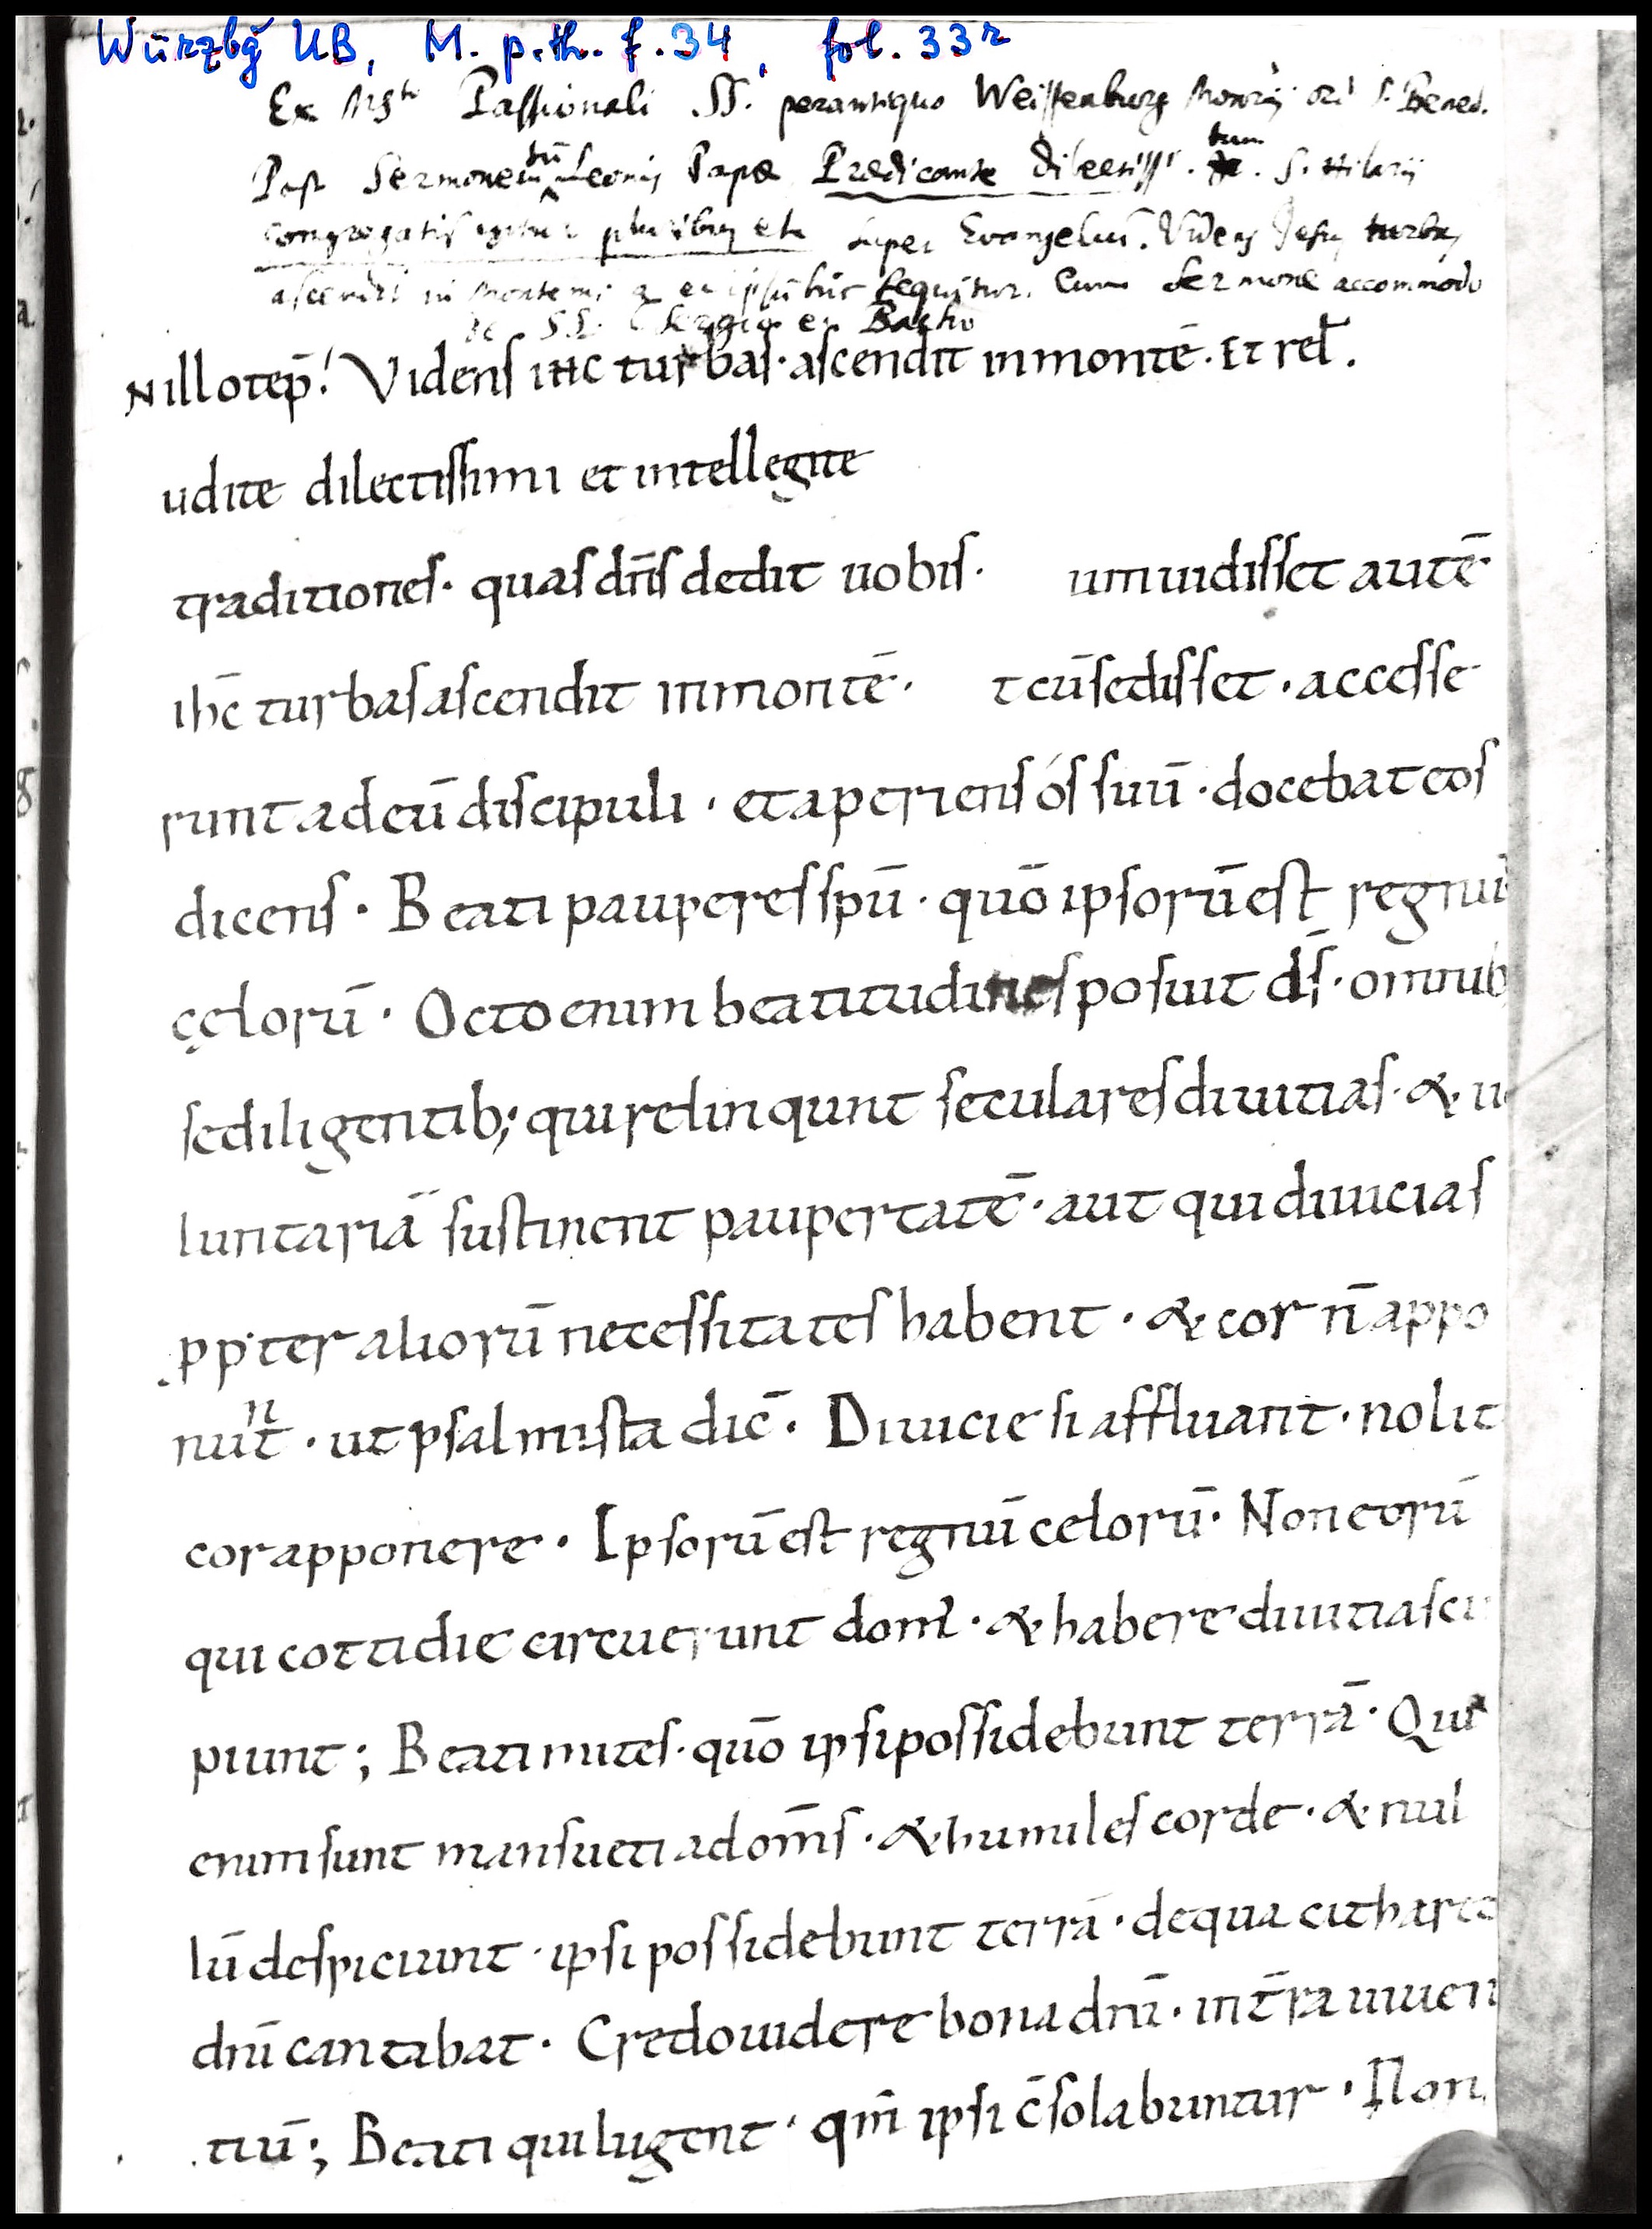 Würzbg UB, M. p. th. f. 34, fol. 33r
Ex Passionali SS. perantiquo Weissenburg S. Bened.
Post Sermonem Leonis Papæ Prædicante dilectiss. tum S. Hilarii
congregatis igitur pluribus etc super Evangeliū. Videns Jesus turbas
ascendit in Montem; sequitur. Cum Sermone accommodo
de SS. Sergio et Bacho
N illo tep̄.! Videns ihc turbas · ascendit in montē · Et rel.
udite dilectissimi et intellegite
traditiones · quas dn̄s dedit uobis · um uidisset autē
ihc̄ turbas ascendit in montē · t cū sedisset · accesse
runt ad eū discipuli · et aperiens ós suū · docebat eos
dicens · Beati pauperes spū · quō ipsorū est regnū
cęlorū · Octo enim beatitudines posuit ds̄ · omnib
se diligentib; qui relinqunt seculares diuitias · & u
luntariā sustinent paupertatē · aut qui diuicias
ppter aliorū necessitates habent · & cor n̄ appo
nūt · ut psalmista dic̄ · Diuicie si affluant · nolit
cor apponere · Ipsorū est regnū celorū · Non eorū
qui cottidie circuerunt dom · & habere diuitias cu
piunt ; Beati mites · quō ipsi possidebunt terrā · Qui
enim sunt mansueti ad om̄s · & humiles corde · & nul
lū despiciunt · ipsi possidebunt terrā · de qua cithareo
dnī cantabat · Credo uidere bona dnī · in t̄ra uiuen
tiū ; Beati qui lugent · qm̄ ipsi c̄solabuntur · Non